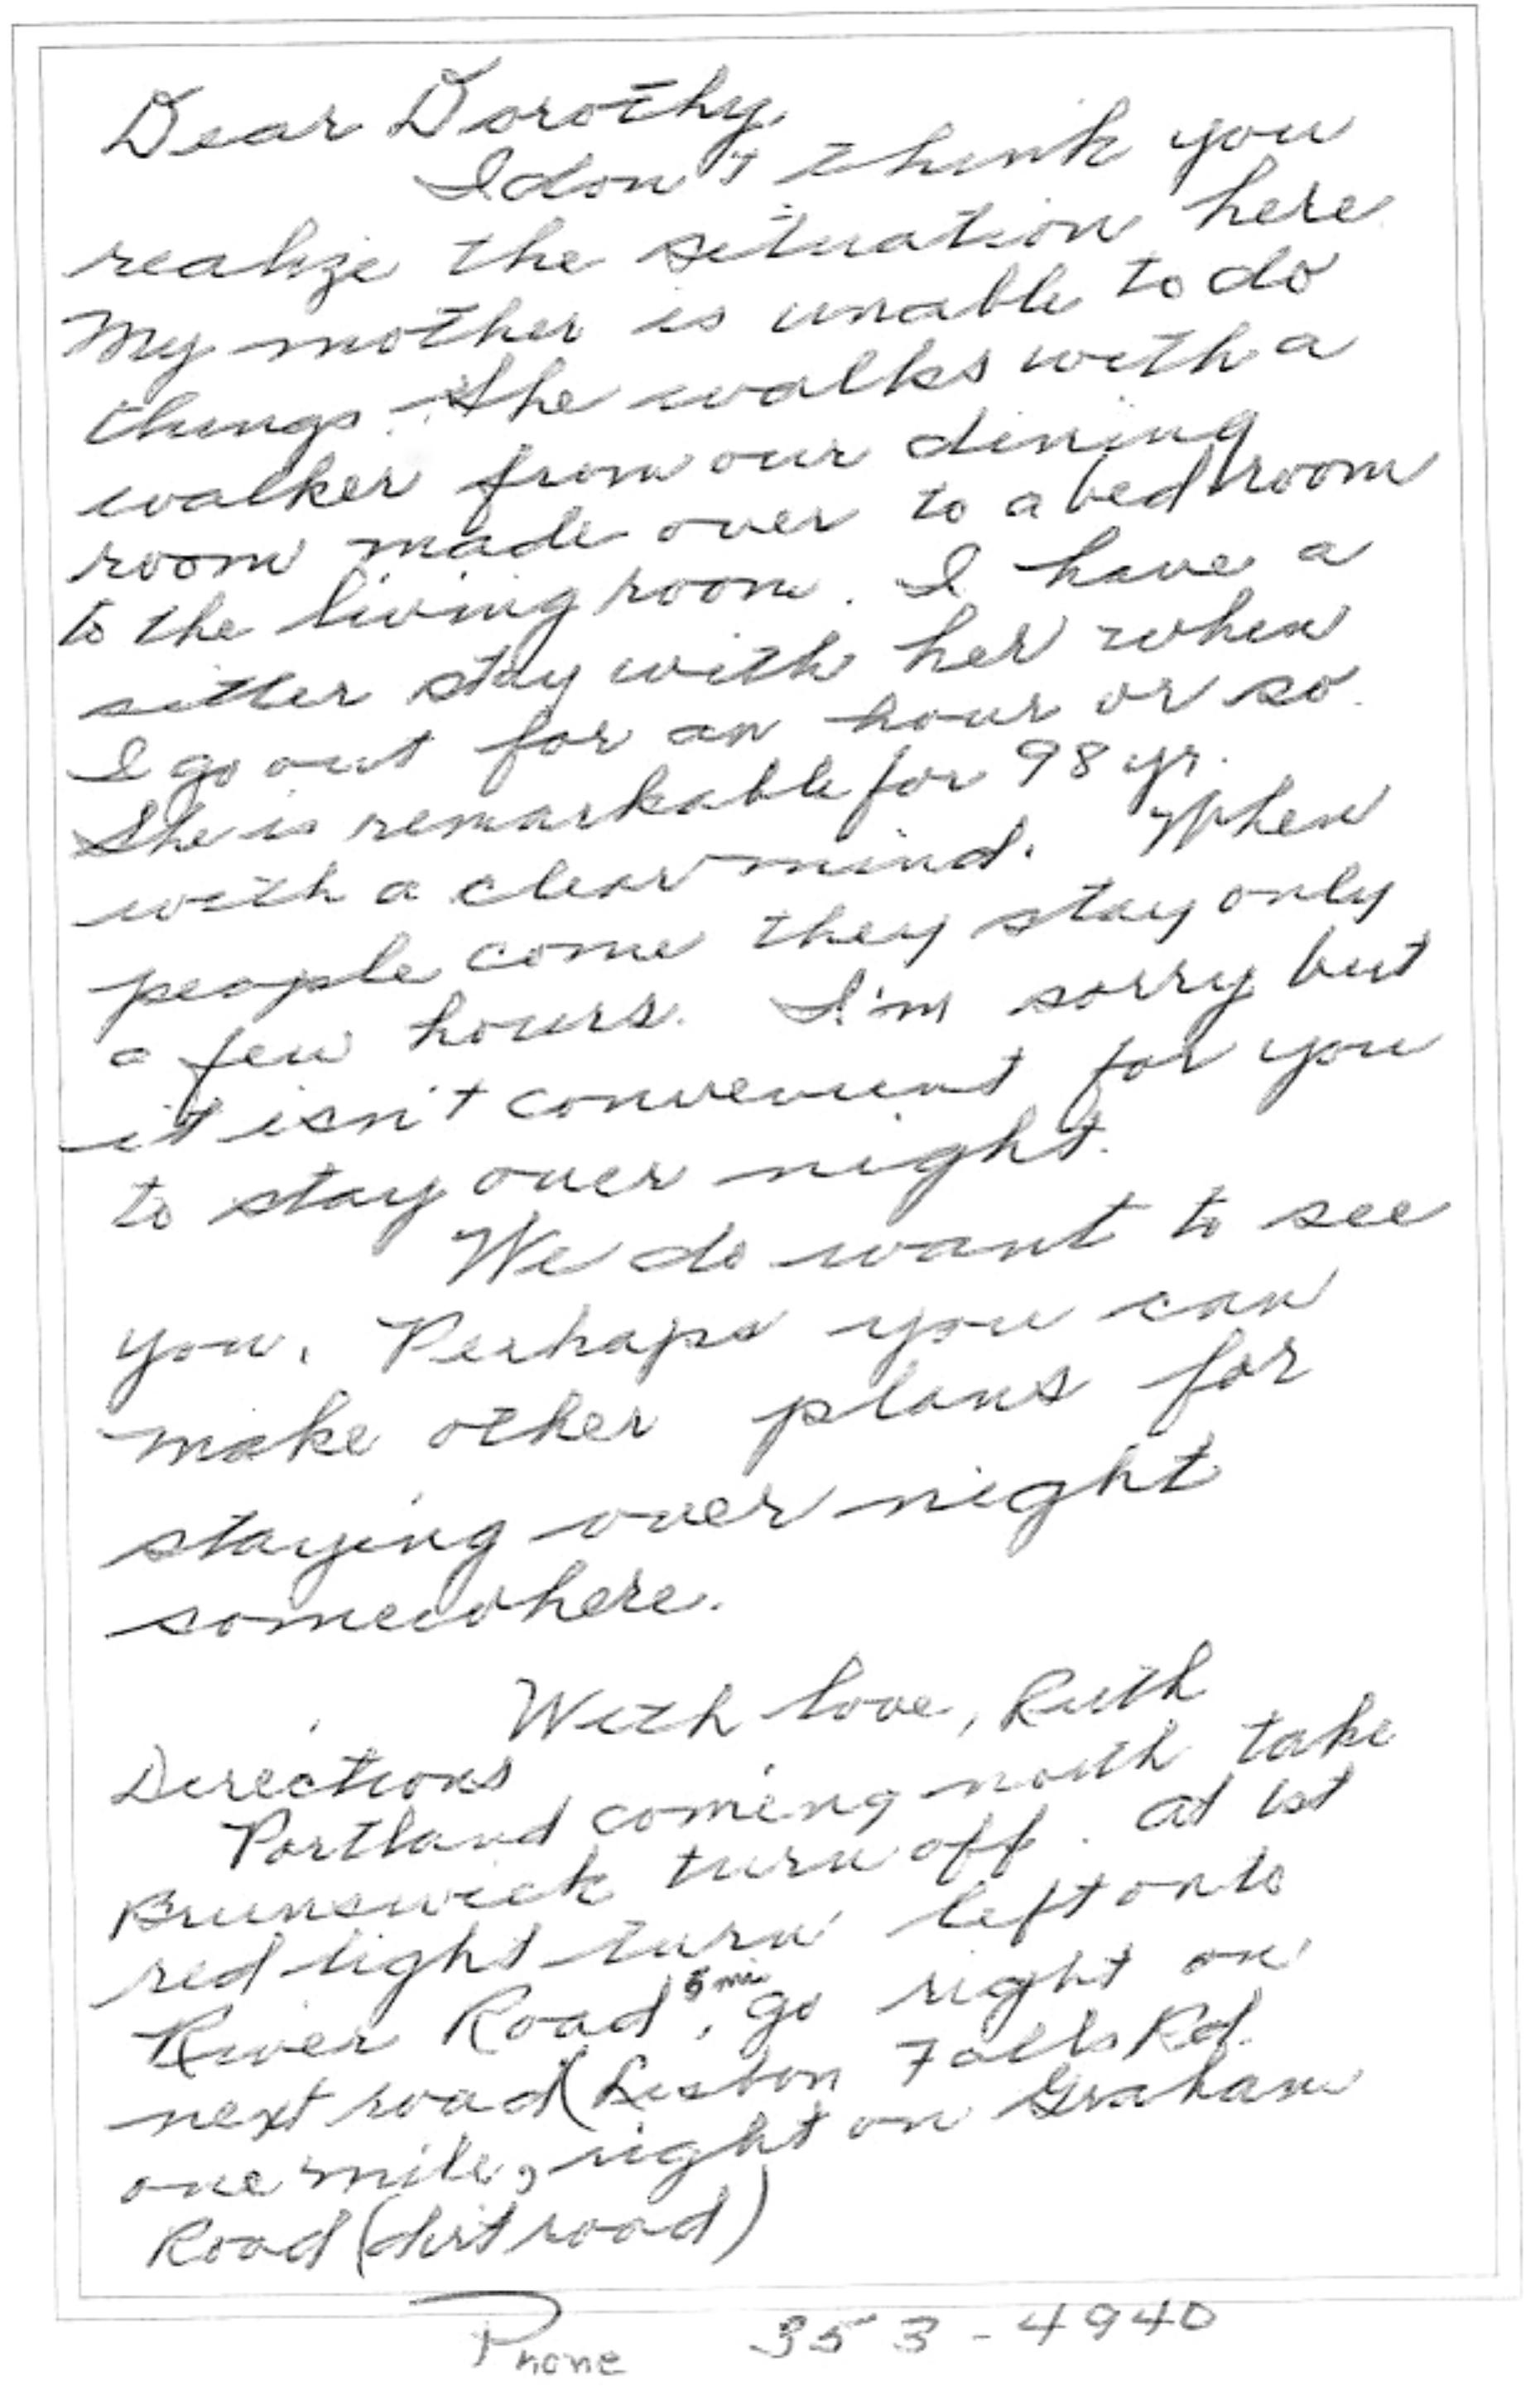 Dear Dorothy,
I don't think you
realize the situation here
My mother is unable to do
things. She walks with a
walker from our dining
room made over to a bedroom
to the living room. I have a
sitter stay with her when
I go out for an hour or so.
She is remarkable for 98 yr.
with a clear mind. When
people come they stay only
a few hours. I'm sorry but
it isn't convenient for you
to stay over night.
We do want to see
you. Perhaps you can
make other plans for
staying over night
somewhere.
With love, Ruth
Directions
Portland coming north take
Brunswick turn off. At 1st
red light turn left onto
River Road 5 mi, go right on
next road (Lisbon Falls Rd.
one mile, right on Graham
Road (dirt road)
Phone 353-4940